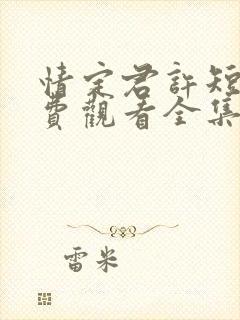 情定君許短
費觀看全集
雷米